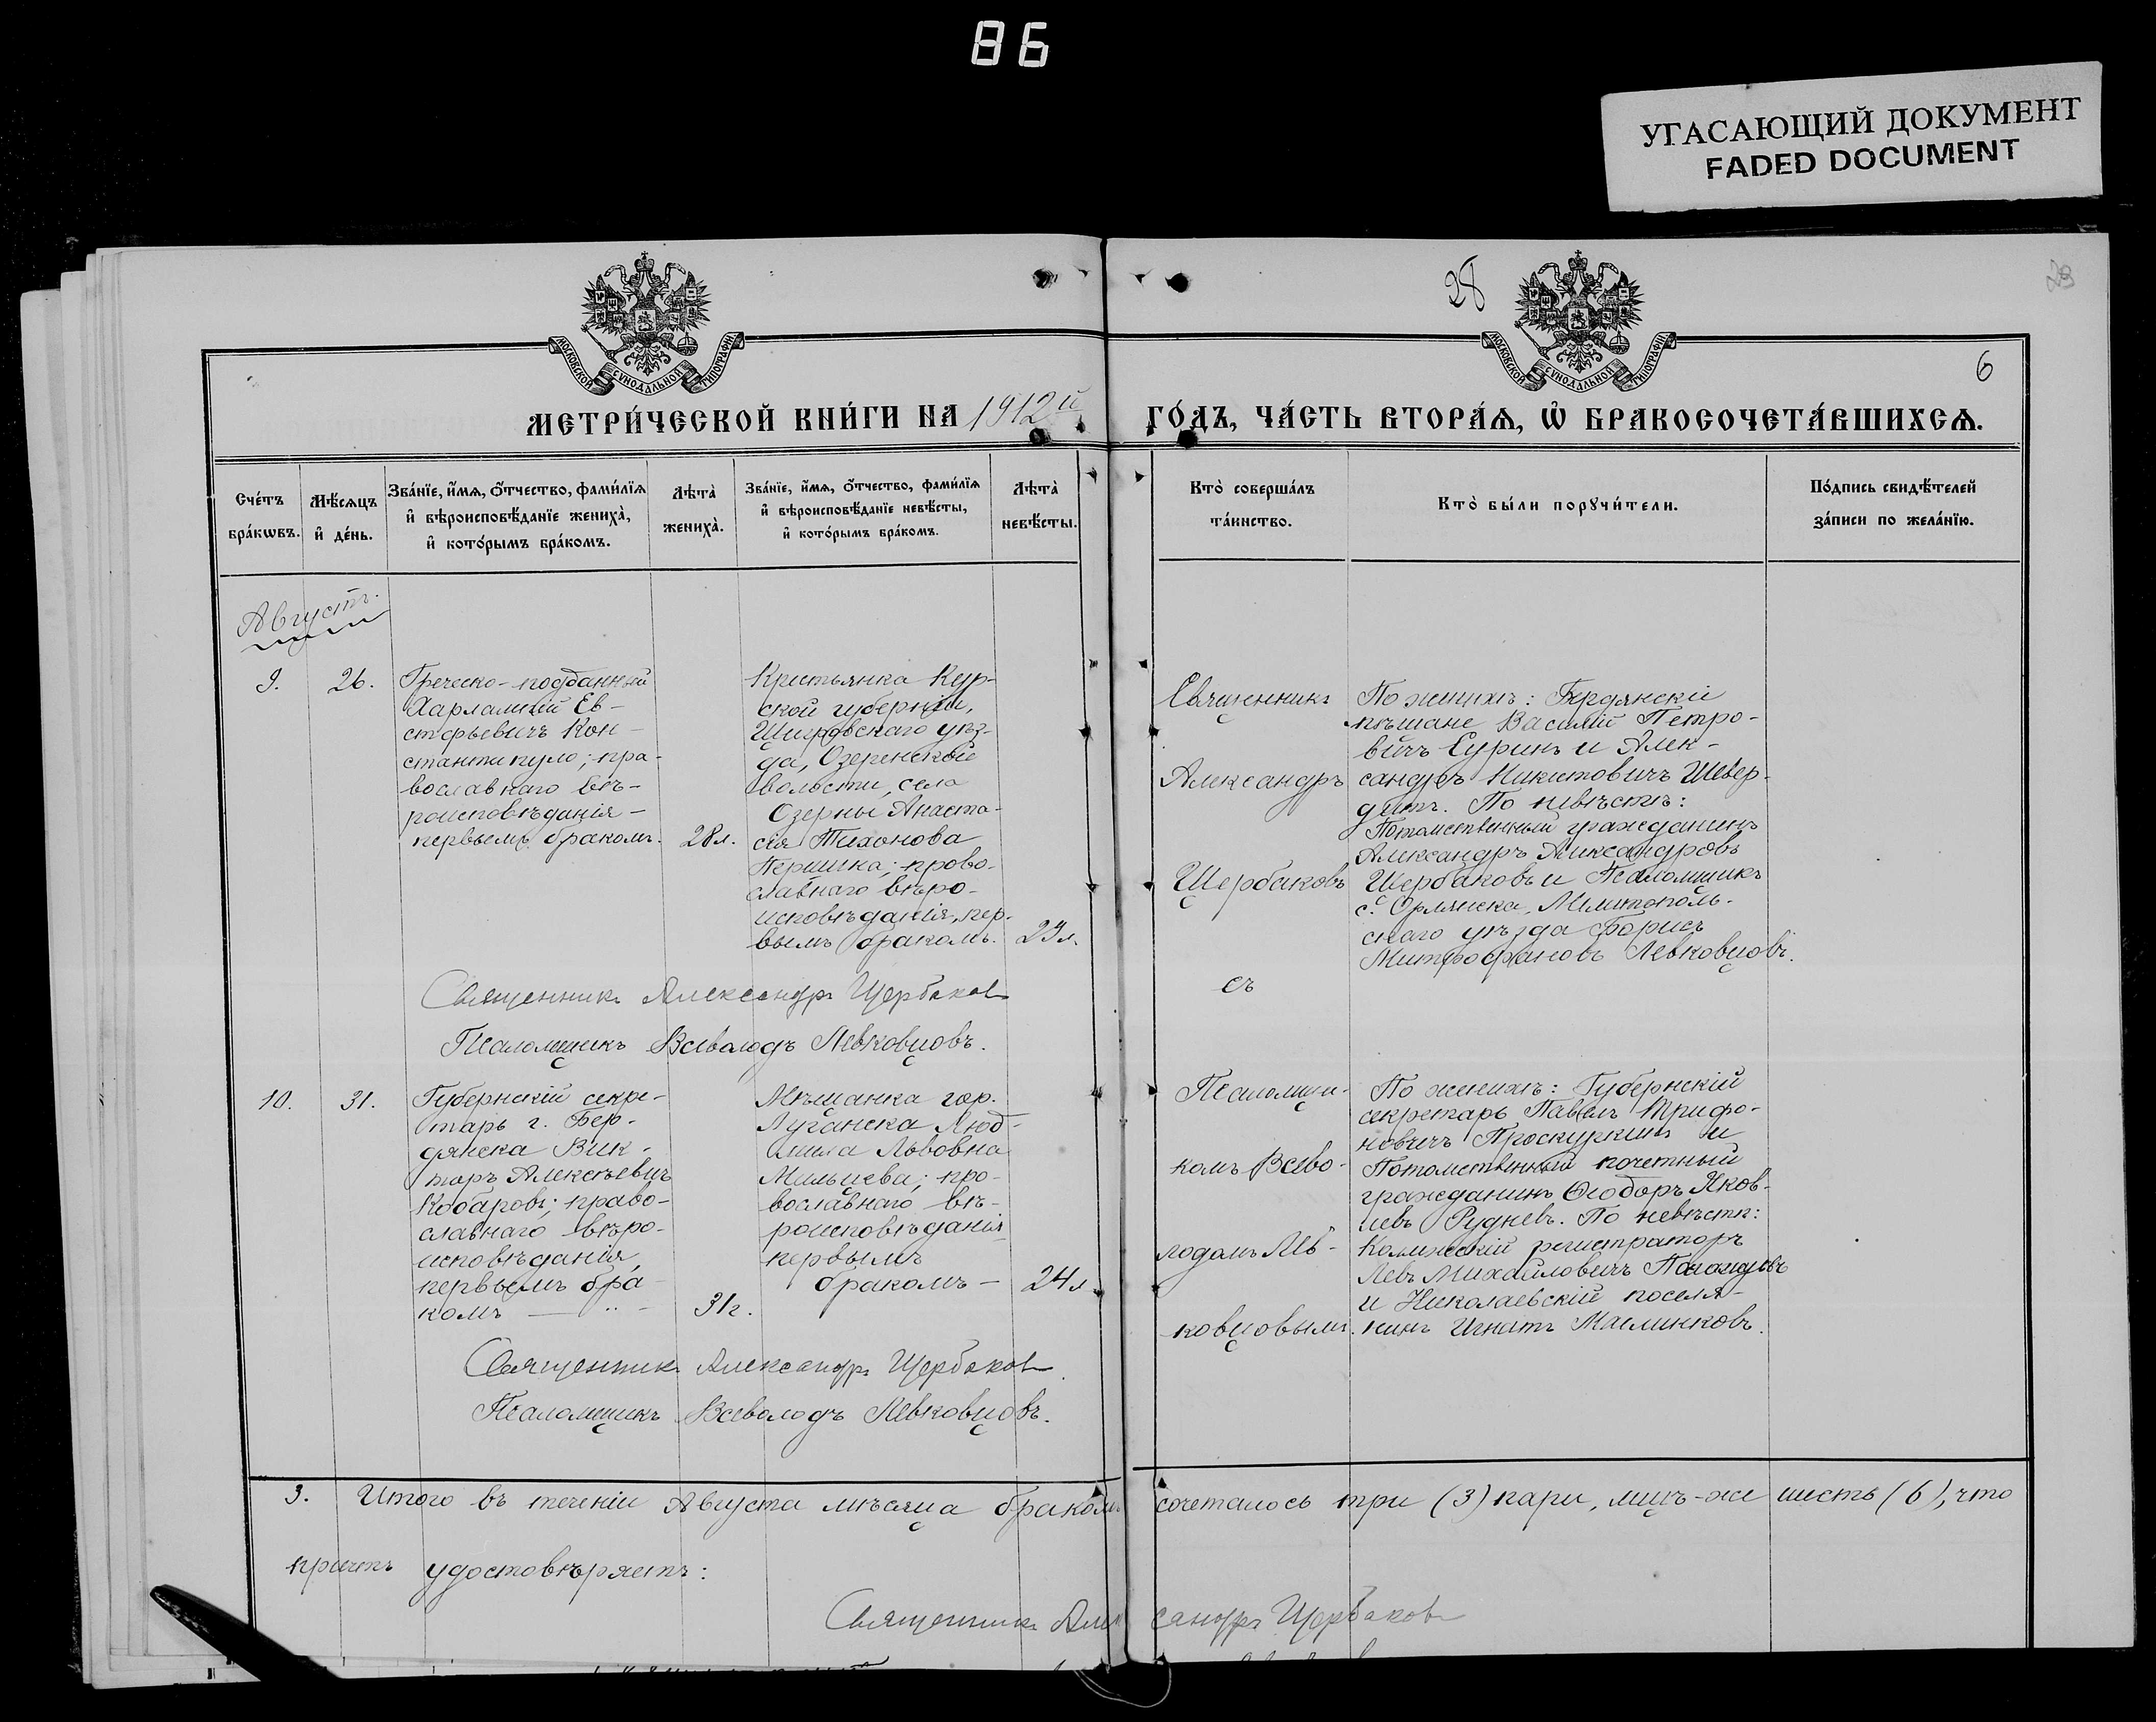 86
УГАСАЮЩИЙ ДОКУМЕНТ
FADED DOCUMENT
28
29
МОСКОВСКОЙ СѴНОДАЛЬНОЙ ТИПОГРАФІИ
МОСКОВСКОЙ СѴНОДАЛЬНОЙ ТИПОГРАФІИ
6
МЕТРИ́ЧЕСКОЙ КНИ́ГИ НА 1912й
ГО́ДЪ, ЧА́СТЬ ВТОРА́Ѧ, Ѡ҆ БРАКОСОЧЕТА́ВШИХСѦ.
Сче́тъ
бра́кωвъ.
Мѣ́сѧцъ
и҆ де́нь.
Зва́нїе, и҆́мѧ, ѻ҆́тчество, фами́лїѧ
и҆ вѣроисповѣ́данїе женихà,
и҆ кото́рымъ бра́комъ.
Лѣ́тà
женихà.
Зва́нїе, и҆́мѧ, ѻ҆́тчество, фами́лїѧ
и҆ вѣроисповѣ́данїе невѣ́сты,
и҆ кото́рымъ бра́комъ.
Лѣ́тà
невѣ́сты.
Кто̀ соверша́лъ
та́инство.
Кто̀ бы́ли порꙋчи́тели.
По́дпись свидѣ́телей
за́писи по жела́нїю.
Августъ.
9.
26.
Греческо-подданный
Харлампій Ев-
стафьевичъ Кон-
стантикуло; пра-
вославнаго вѣ-
роисповѣданія-
первымъ бракомъ.
28л.
Кристьянка Кур-
ской губерніи,
Щигровскаго уѣз-
да, Озеренской
волости, села
Озерны Анаста-
сія Тихонова
прово-
славнаго вѣро-
исповѣданія, пер-
вымъ бракомъ.
Священникъ
Александръ
Щербаковъ
съ
По женихѣ: Бердянскіе
мѣщане Василій Петро-
вичъ и Алек-
сандръ Никитовичъ Шевер-
дитъ. По невѣстѣ:
Потомственный гражданинъ
Александръ Александровъ
Щербаковъ и Псаломщикъ
с. Орлянска, Мелитополь-
скаго уѣзда Борисъ
Митрофановъ Левковцовъ.
Священникъ Александръ Щербаковъ
Псаломщикъ Всеволодъ Левковцовъ.
10.
31.
Губернскій секре-
тарь г. Бер-
дянска Вик-
торъ Алексѣевичъ
Кобаровъ; право-
славнаго вѣро-
исповѣданія,
первымъ бра-
комъ
31г.
Мѣщанка гор.
Луганска Люд-
мила Львовна
про-
вославнаго вѣ-
роисповѣданія
первымъ
бракомъ-
24л.
Псаломщи-
комъ Всево-
лодомъ Лев-
ковцовымъ.
По женихѣ: Губернскій
секретарь Павелъ Трифо-
новичъ Проскуркинъ и
Потомственный почетный
гражданинъ Ѳеодоръ Яков-
левъ Рудневъ. По невѣстѣ:
регистраторъ
Левъ Михайловичъ
и Николаевскій поселя-
нинъ Игнатъ
Священникъ Александръ Щербаковъ
Псаломщикъ Всеволодъ Левковцовъ.
3. Итого въ теченіи Августа мѣсяца бракомъ сочеталось три (3) пары, лицъ-же шесть (6), что
причтъ удостовѣряетъ:
Священникъ Александръ Щербаковъ